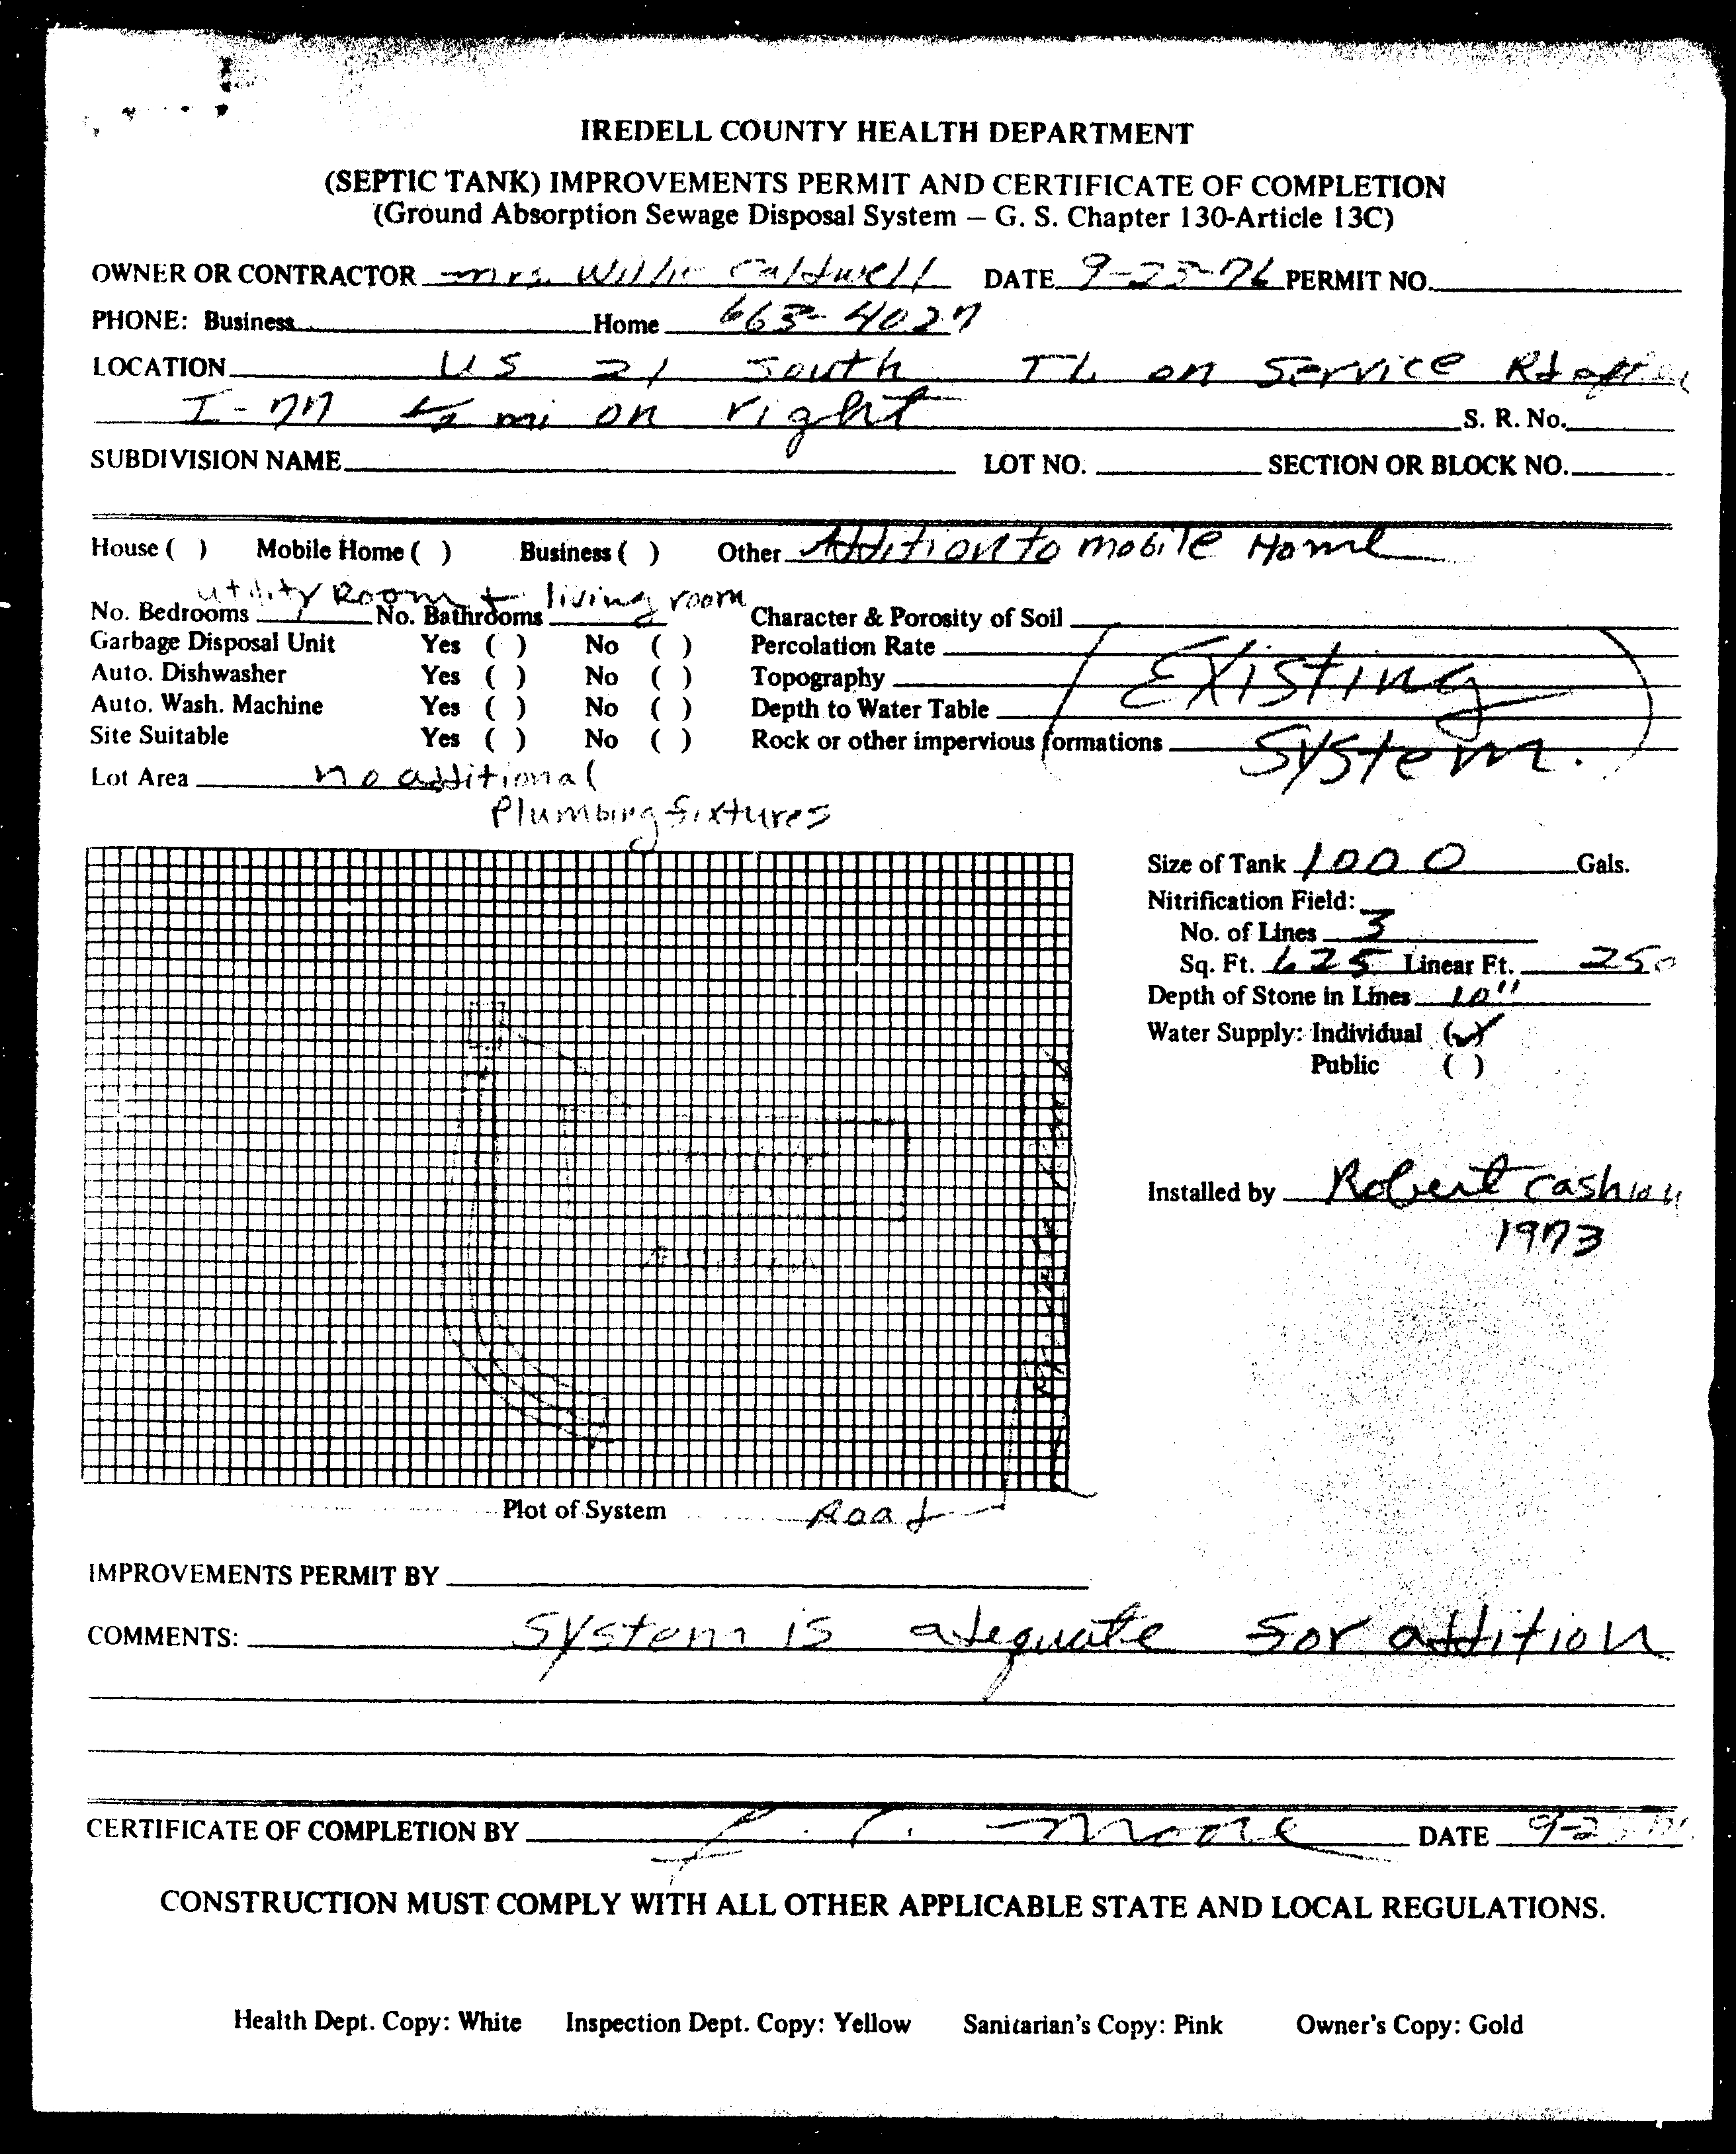 IREDELL COUNTY HEALTH DEPARTMENT
(SEPTIC TANK) IMPROVEMENTS PERMIT AND CERTIFICATE OF COMPLETION
(Ground Absorption Sewage Disposal System – G. S. Chapter 130-Article 13C)
OWNER OR CONTRACTOR mrs. Willie Caldwell DATE 9-23-76 PERMIT NO.
PHONE: Business Home 663-4027
LOCATION US 21 South TL on Service Rd after
I-77 ½ mi on right S. R. No.
SUBDIVISION NAME LOT NO. SECTION OR BLOCK NO.
House ( ) Mobile Home ( ) Business ( ) Other Addition to mobile Home
utility Room + living room
No. Bedrooms No. Bathrooms Character & Porosity of Soil
Garbage Disposal Unit Yes ( ) No ( ) Percolation Rate
Auto. Dishwasher Yes ( ) No ( ) Topography Existing
Auto. Wash. Machine Yes ( ) No ( ) Depth to Water Table
Site Suitable Yes ( ) No ( ) Rock or other impervious formations System.
Lot Area no additional
Plumbing fixtures
Size of Tank 1000 Gals.
Nitrification Field:
No. of Lines 3
Sq. Ft. 625 Linear Ft. 250
Depth of Stone in Lines 10"
Water Supply: Individual (✓)
Public ( )
Installed by Robert Cashion
1973
Plot of System Road
IMPROVEMENTS PERMIT BY
COMMENTS: System is adequate for addition
CERTIFICATE OF COMPLETION BY Moore DATE
CONSTRUCTION MUST COMPLY WITH ALL OTHER APPLICABLE STATE AND LOCAL REGULATIONS.
Health Dept. Copy: White Inspection Dept. Copy: Yellow Sanitarian's Copy: Pink Owner's Copy: Gold